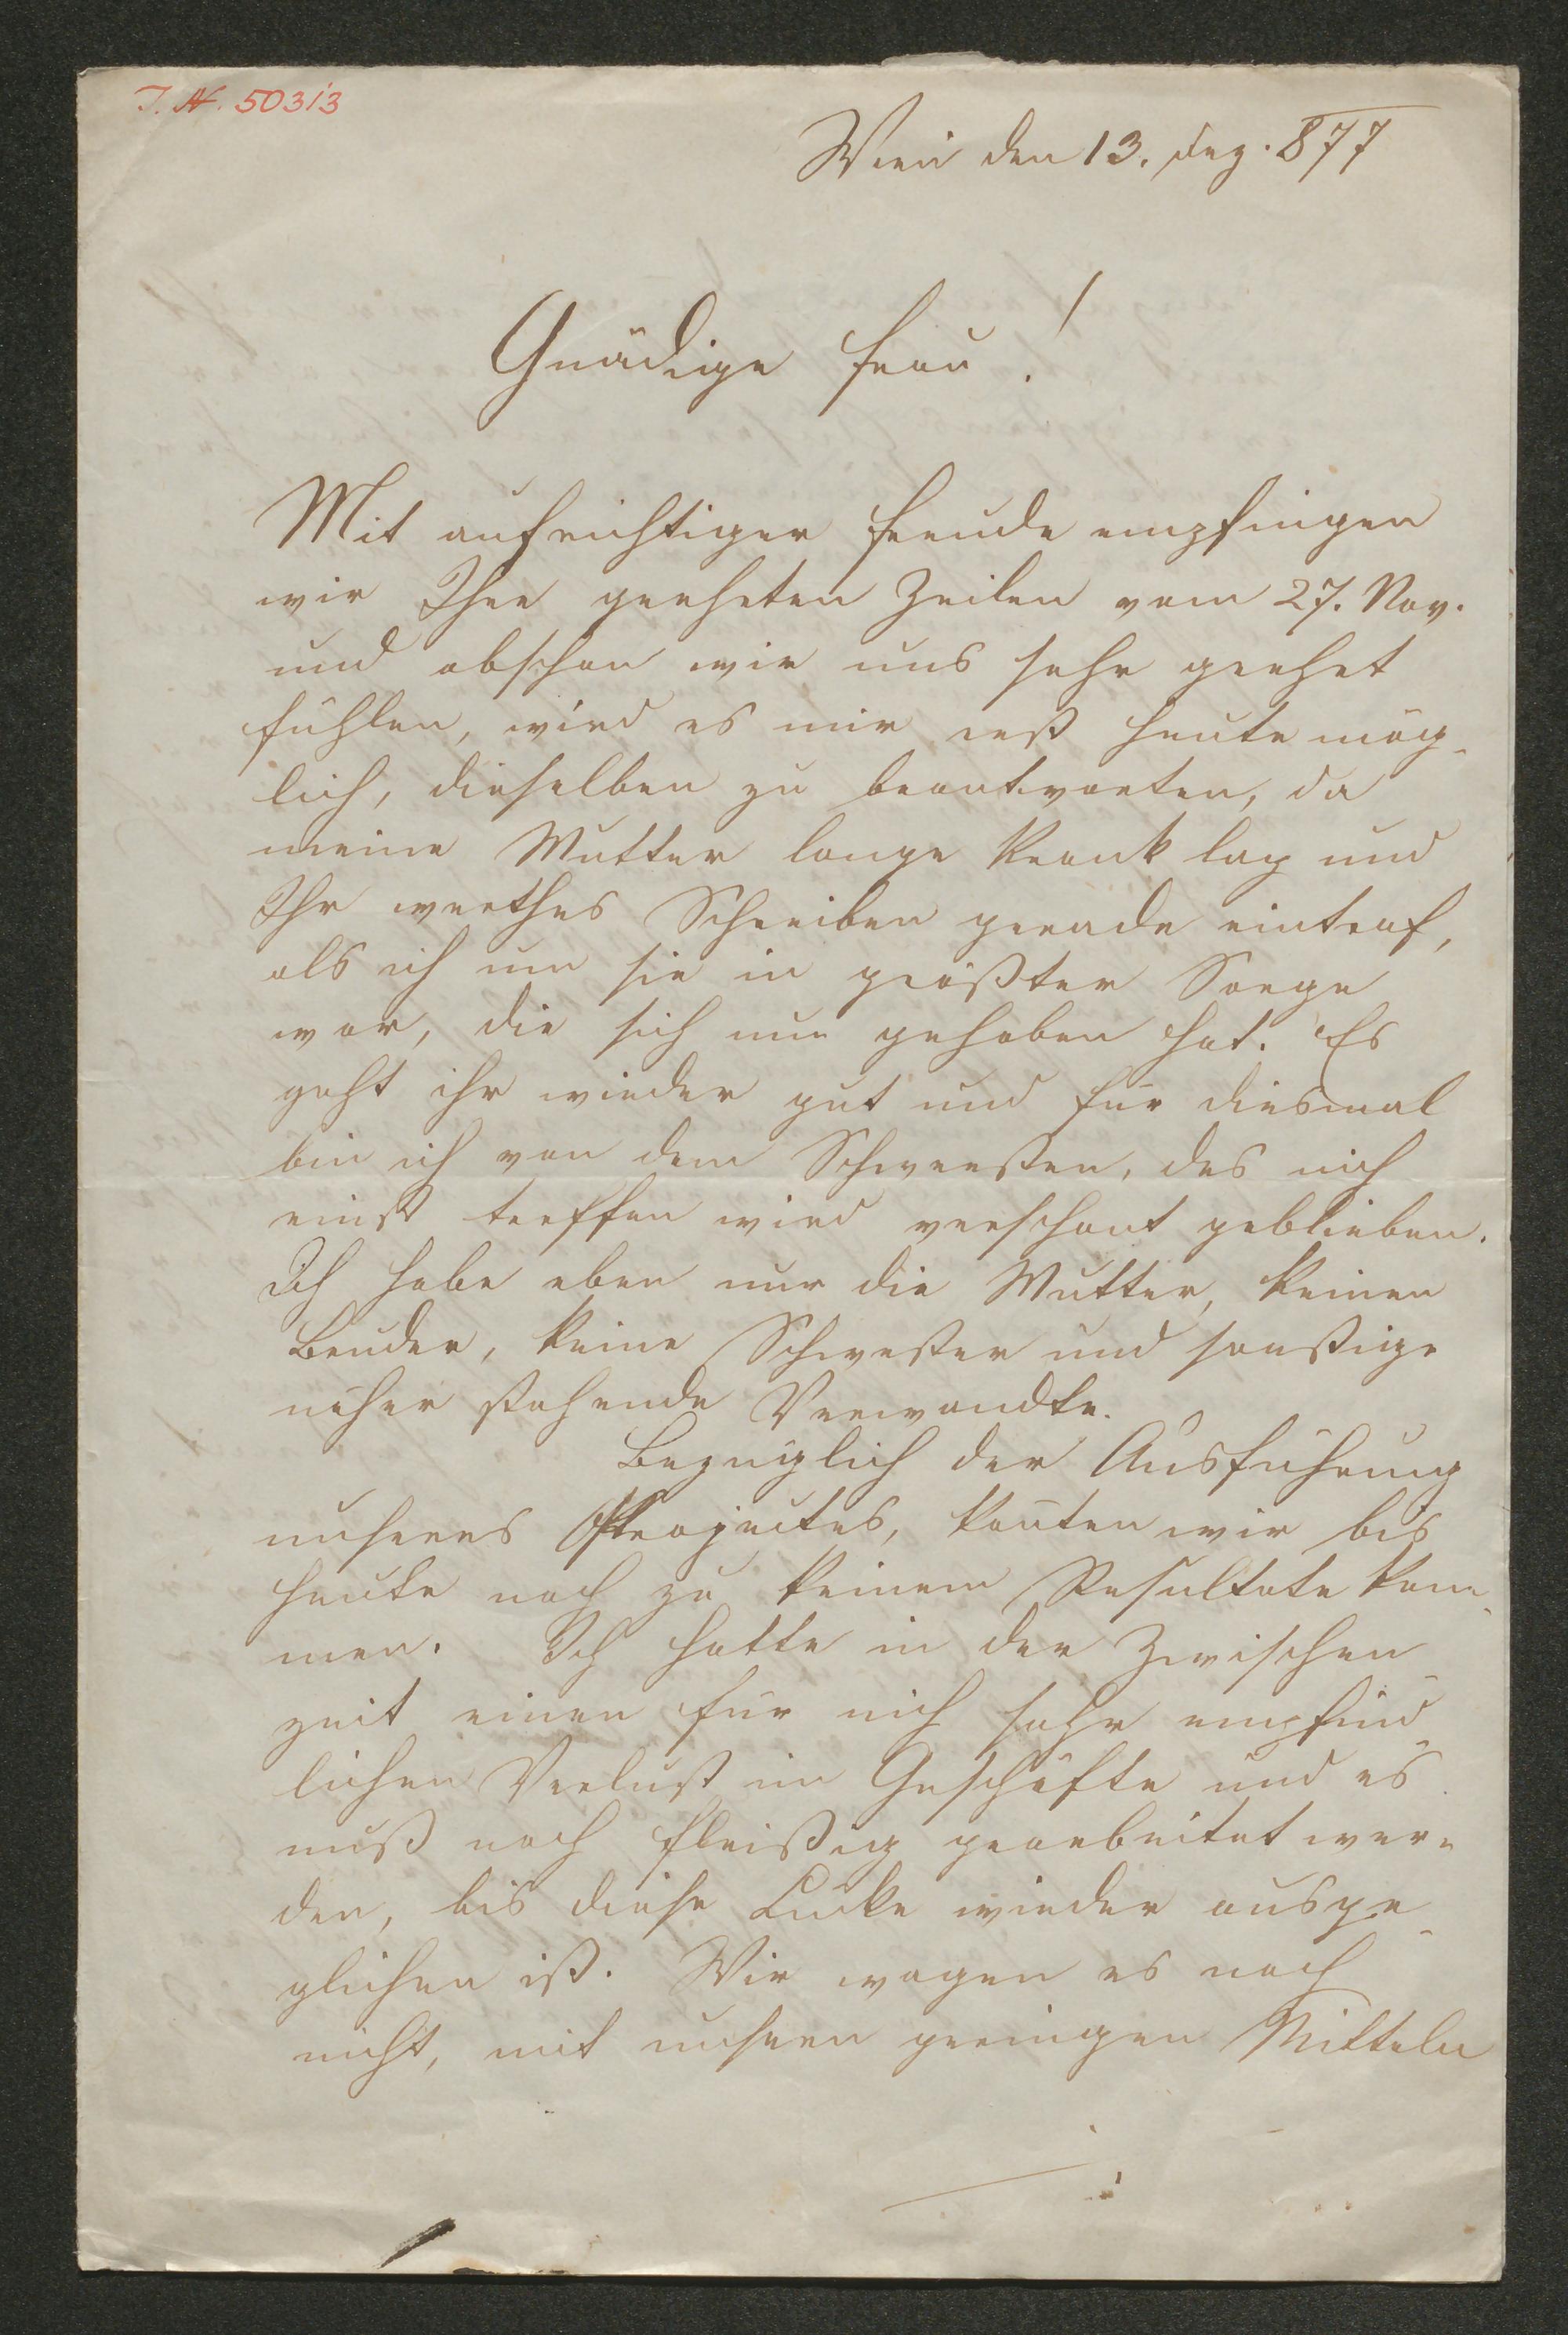 I. N. 50313
Wien den 13. Dez. 877
Gnädige Frau!
Mit aufrichtiger Freude empfingen
wir Ihre geehrten Zeilen vom 27. Nov.
und obschon wir uns sehr geehrt
fühlen, wird es mir erst heute mög-
lich, dieselben zu beantworten, da
meine Mutter lange krank lag und
Ihr werthes Schreiben gerade eintraf,
als ich um sie in größter Sorge
war, die sich nun gehoben hat. Es
geht ihr wieder gut und für diesmal
bin ich von dem Schwersten, das mich
einst treffen wird verschont geblieben.
Ich habe eben nur die Mutter, keinen
Bruder, keine Schwester und sonstige
näher stehende Verwandte.
Bezüglich der Ausführung
unseres Projectes, konnten wir bis
heute noch zu keinem Resultate kom-
men. Ich hatte in der Zwischen
zeit einen für mich sehr empfind
lichen Verlust im Geschäfte und es
muß noch fleißig gearbeitet wer-
den, bis diese Lücke wieder ausge-
glichen ist. Wir wagen es noch
nicht, mit unseren geringen Mitteln